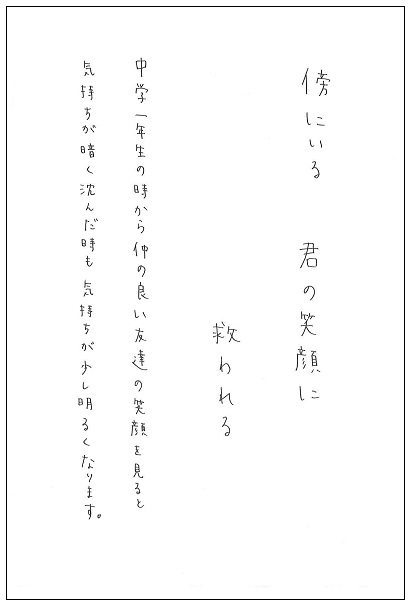 傍にいる　君の笑顔に
救われる
中学一年生の時から仲の良い友達の笑顔を見ると
気持ちが暗く沈んだ時も気持ちが少し明るくなります。